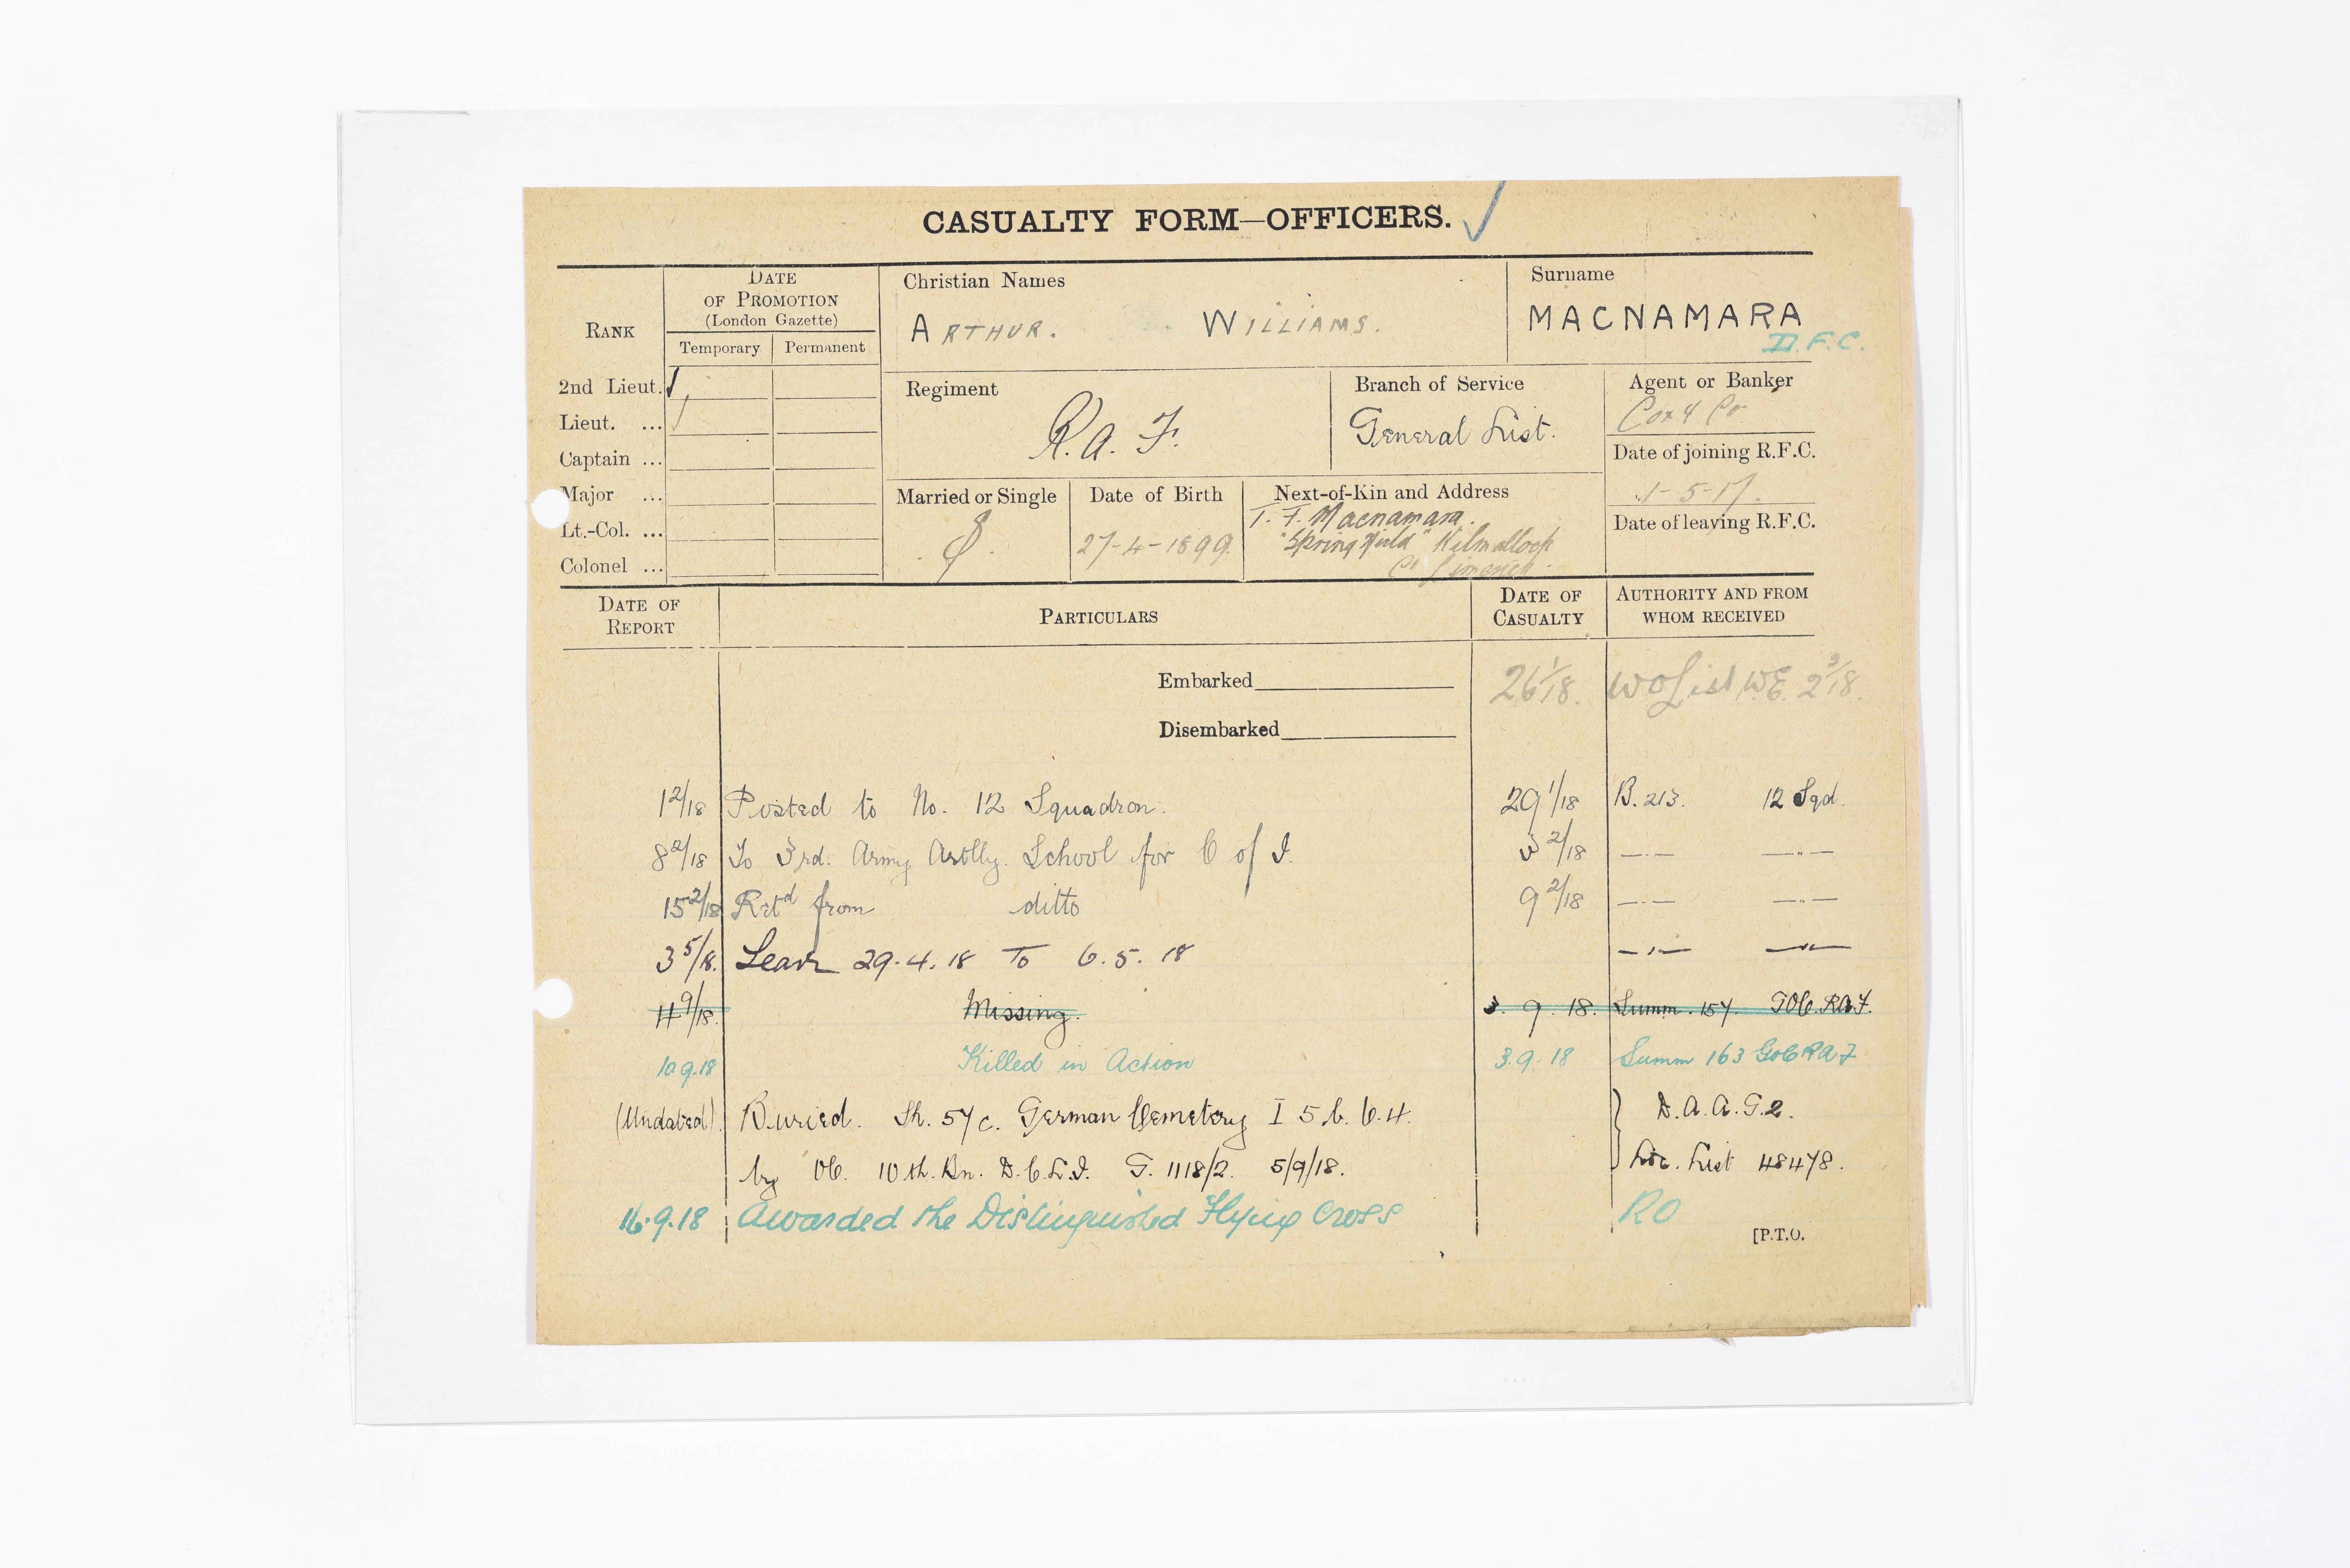 CASUALTY FORM—OFFICERS.
RANK
DATE
OF PROMOTION
(London Gazette)
Temporary Permanent
2nd Lieut.
Lieut. ...
Captain ...
Major ...
Lt.-Col. ...
Colonel ...
Christian Names
ARTHUR. WILLIAMS.
Surname
MACNAMARA
D.F.C.
Regiment
R.A.F.
Branch of Service
General List.
Agent or Banker
Cox & Co
Date of joining R.F.C.
1-5-17.
Date of leaving R.F.C.
Married or Single
S.
Date of Birth
27-4-1899
Next-of-Kin and Address
T. F. Macnamara.
"Springfield" Kilmallock
Co Limerick
DATE OF REPORT PARTICULARS DATE OF CASUALTY AUTHORITY AND FROM WHOM RECEIVED
Embarked 26 1/18. WO List W.E. 2 3/18.
Disembarked
1 2/18 Posted to No. 12 Squadron. 29 1/18 B. 213. 12 Sqd.
8 2/18 To 3rd. Army Artlly. School for C of I. 3 2/18 —"— —"—
15 2/18 Retd from ditto 9 2/18 —"— —"—
3 5/18. Leave 29.4.18 To 6.5.18 —"— —"—
9/18. Missing. 3. 9. 18. Summ. 157. GOC. RAF.
10.9.18 Killed in Action 3.9.18 Summ 163 GOC RAF
(Undated). Buried. Sh. 57c. German Cemetery I 5.b. 6.4. D.A.A.G.2.
by OC. 10th. Bn. D.C.L.I. G. 1118/2. 5/9/18. Loc. List 48478.
16.9.18 Awarded the Distinguished Flying Cross RO
[P.T.O.